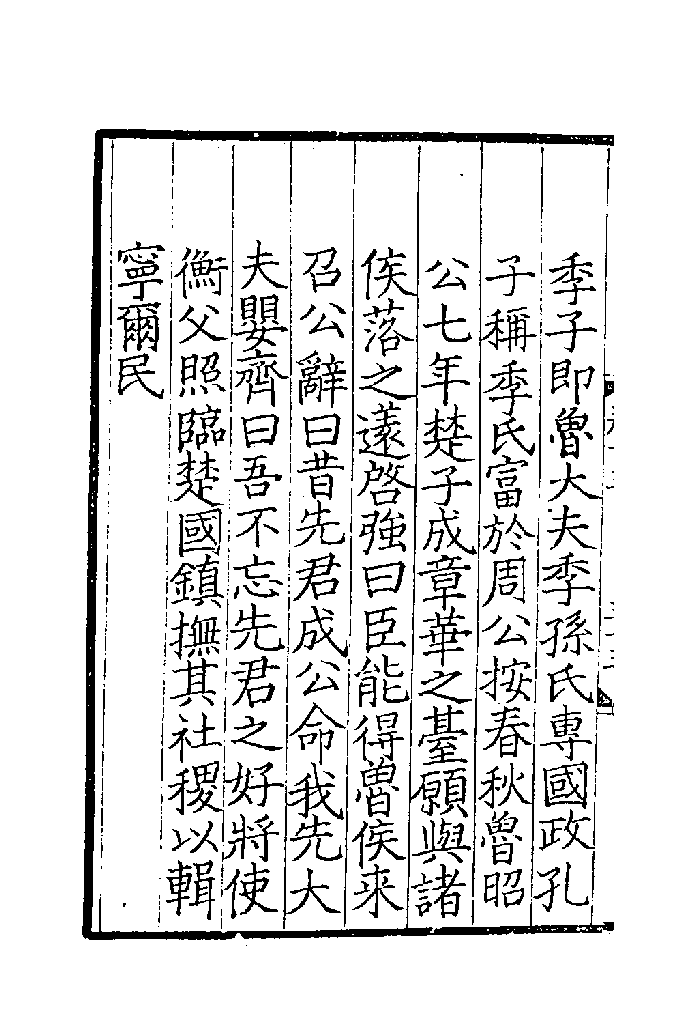 季子即魯大夫季孫氏專國政孔
子稱季氏富於周公按春秋魯昭
公七年楚子成章華之䑓願與諸
侯落之薳啓強曰臣能得魯侯来
召公辭曰昔先君成公命我先大
夫嬰齊曰吾不忘先君之好將使
衡父照臨楚國鎮撫其社稷以輯
寧爾民